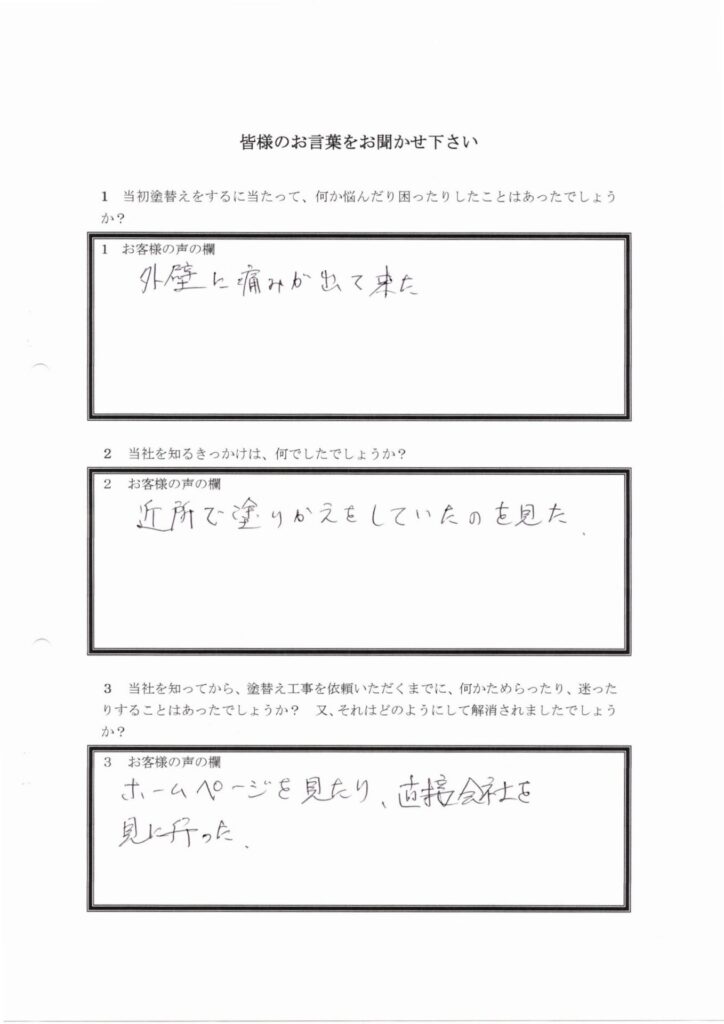 皆様のお言葉をお聞かせ下さい
1 当初塗替えをするに当たって、何か悩んだり困ったりしたことはあったでしょう
か？
1 お客様の声の欄
外壁に痛みが出て来た
2 当社を知るきっかけは、何でしたでしょうか？
2 お客様の声の欄
近所で塗りかえをしていたのを見た.
3 当社を知ってから、塗替え工事を依頼いただくまでに、何かためらったり、迷った
りすることはあったでしょうか？ 又、それはどのようにして解消されましたでしょう
か？
3 お客様の声の欄
ホームページを見たり、直接会社を
見に行った.